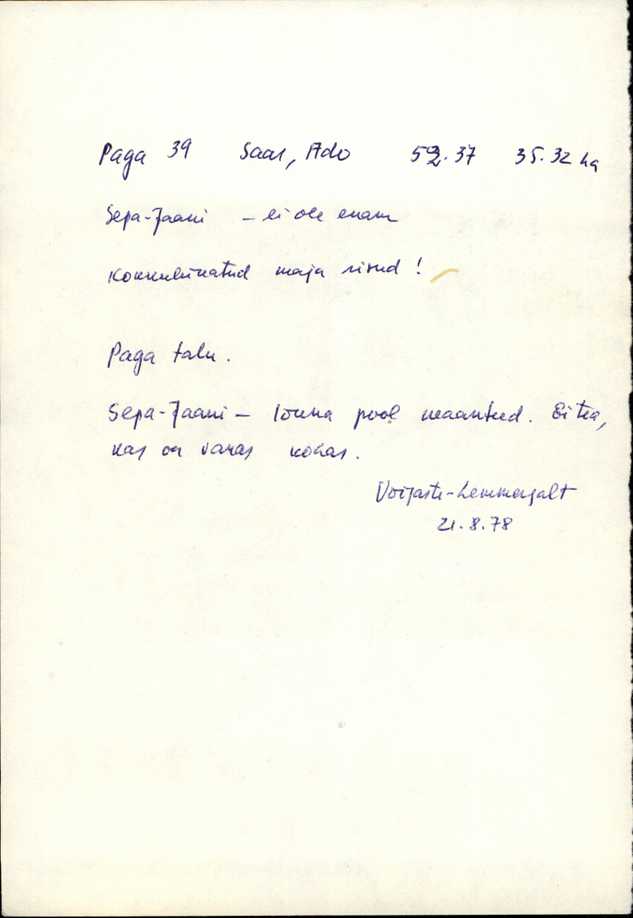 Paga 39 Saar, Ado 52.37 35.32 ha
Sepa-Jaani – ei ole enam
maja rivid !
Paga talu.
Sepa-Jaani – lõuna pool maanteed. Ei tea,
kas on vanas kohas.
Võiste-Lemmejalt
21.8.78